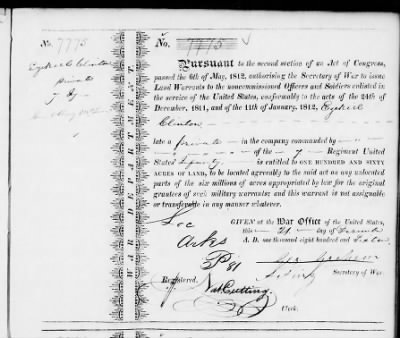 No. 7775
No. 7775
Ezekiel Clinton
private
7 Reg
Pursuant to the second section of an Act of Congress,
passed the 6th of May, 1812, authorising the Secretary of War to issue
Land Warrants to the noncommissioned Officers and Soldiers enlisted in
the service of the United States, conformably to the acts of the 24th of
December, 1811, and of the 11th of January, 1812, Ezekiel
Clinton
late a private in the company commanded by
of the 7 Regiment United
States Infantry is entitled to ONE HUNDRED AND SIXTY
ACRES OF LAND, to be located agreeably to the said act on any unlocated
parts of the six millions of acres appropriated by law for the original
grantees of such military warrants; and this warrant is not assignable
or transferable in any manner whatever.
WAR DEPARTMENT
GIVEN at the War Office of the United States,
this 21 day of
A. D. one thousand eight hundred and
Loc
Arks
P 81
Secretary of War.
Registered.
Nat. Cutting
Clerk.